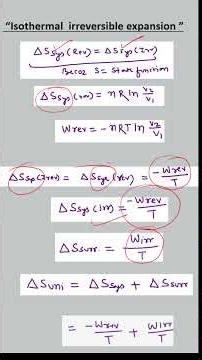 “Isothermal irreversible expansion”
ΔSsys(Rev) = ΔSsys(Irr)
Becoz S = State function
ΔSsys(irr) = nR ln V2/V1
Wrev = -nRT ln V2/V1
ΔSsys(irrev) = ΔSsys(rev) = -Wrev/T
ΔSsys(irr) = -Wrev/T
ΔSsurr = Wirr/T
ΔSuni = ΔSsys + ΔSsurr
= -Wrev/T + Wirr/T